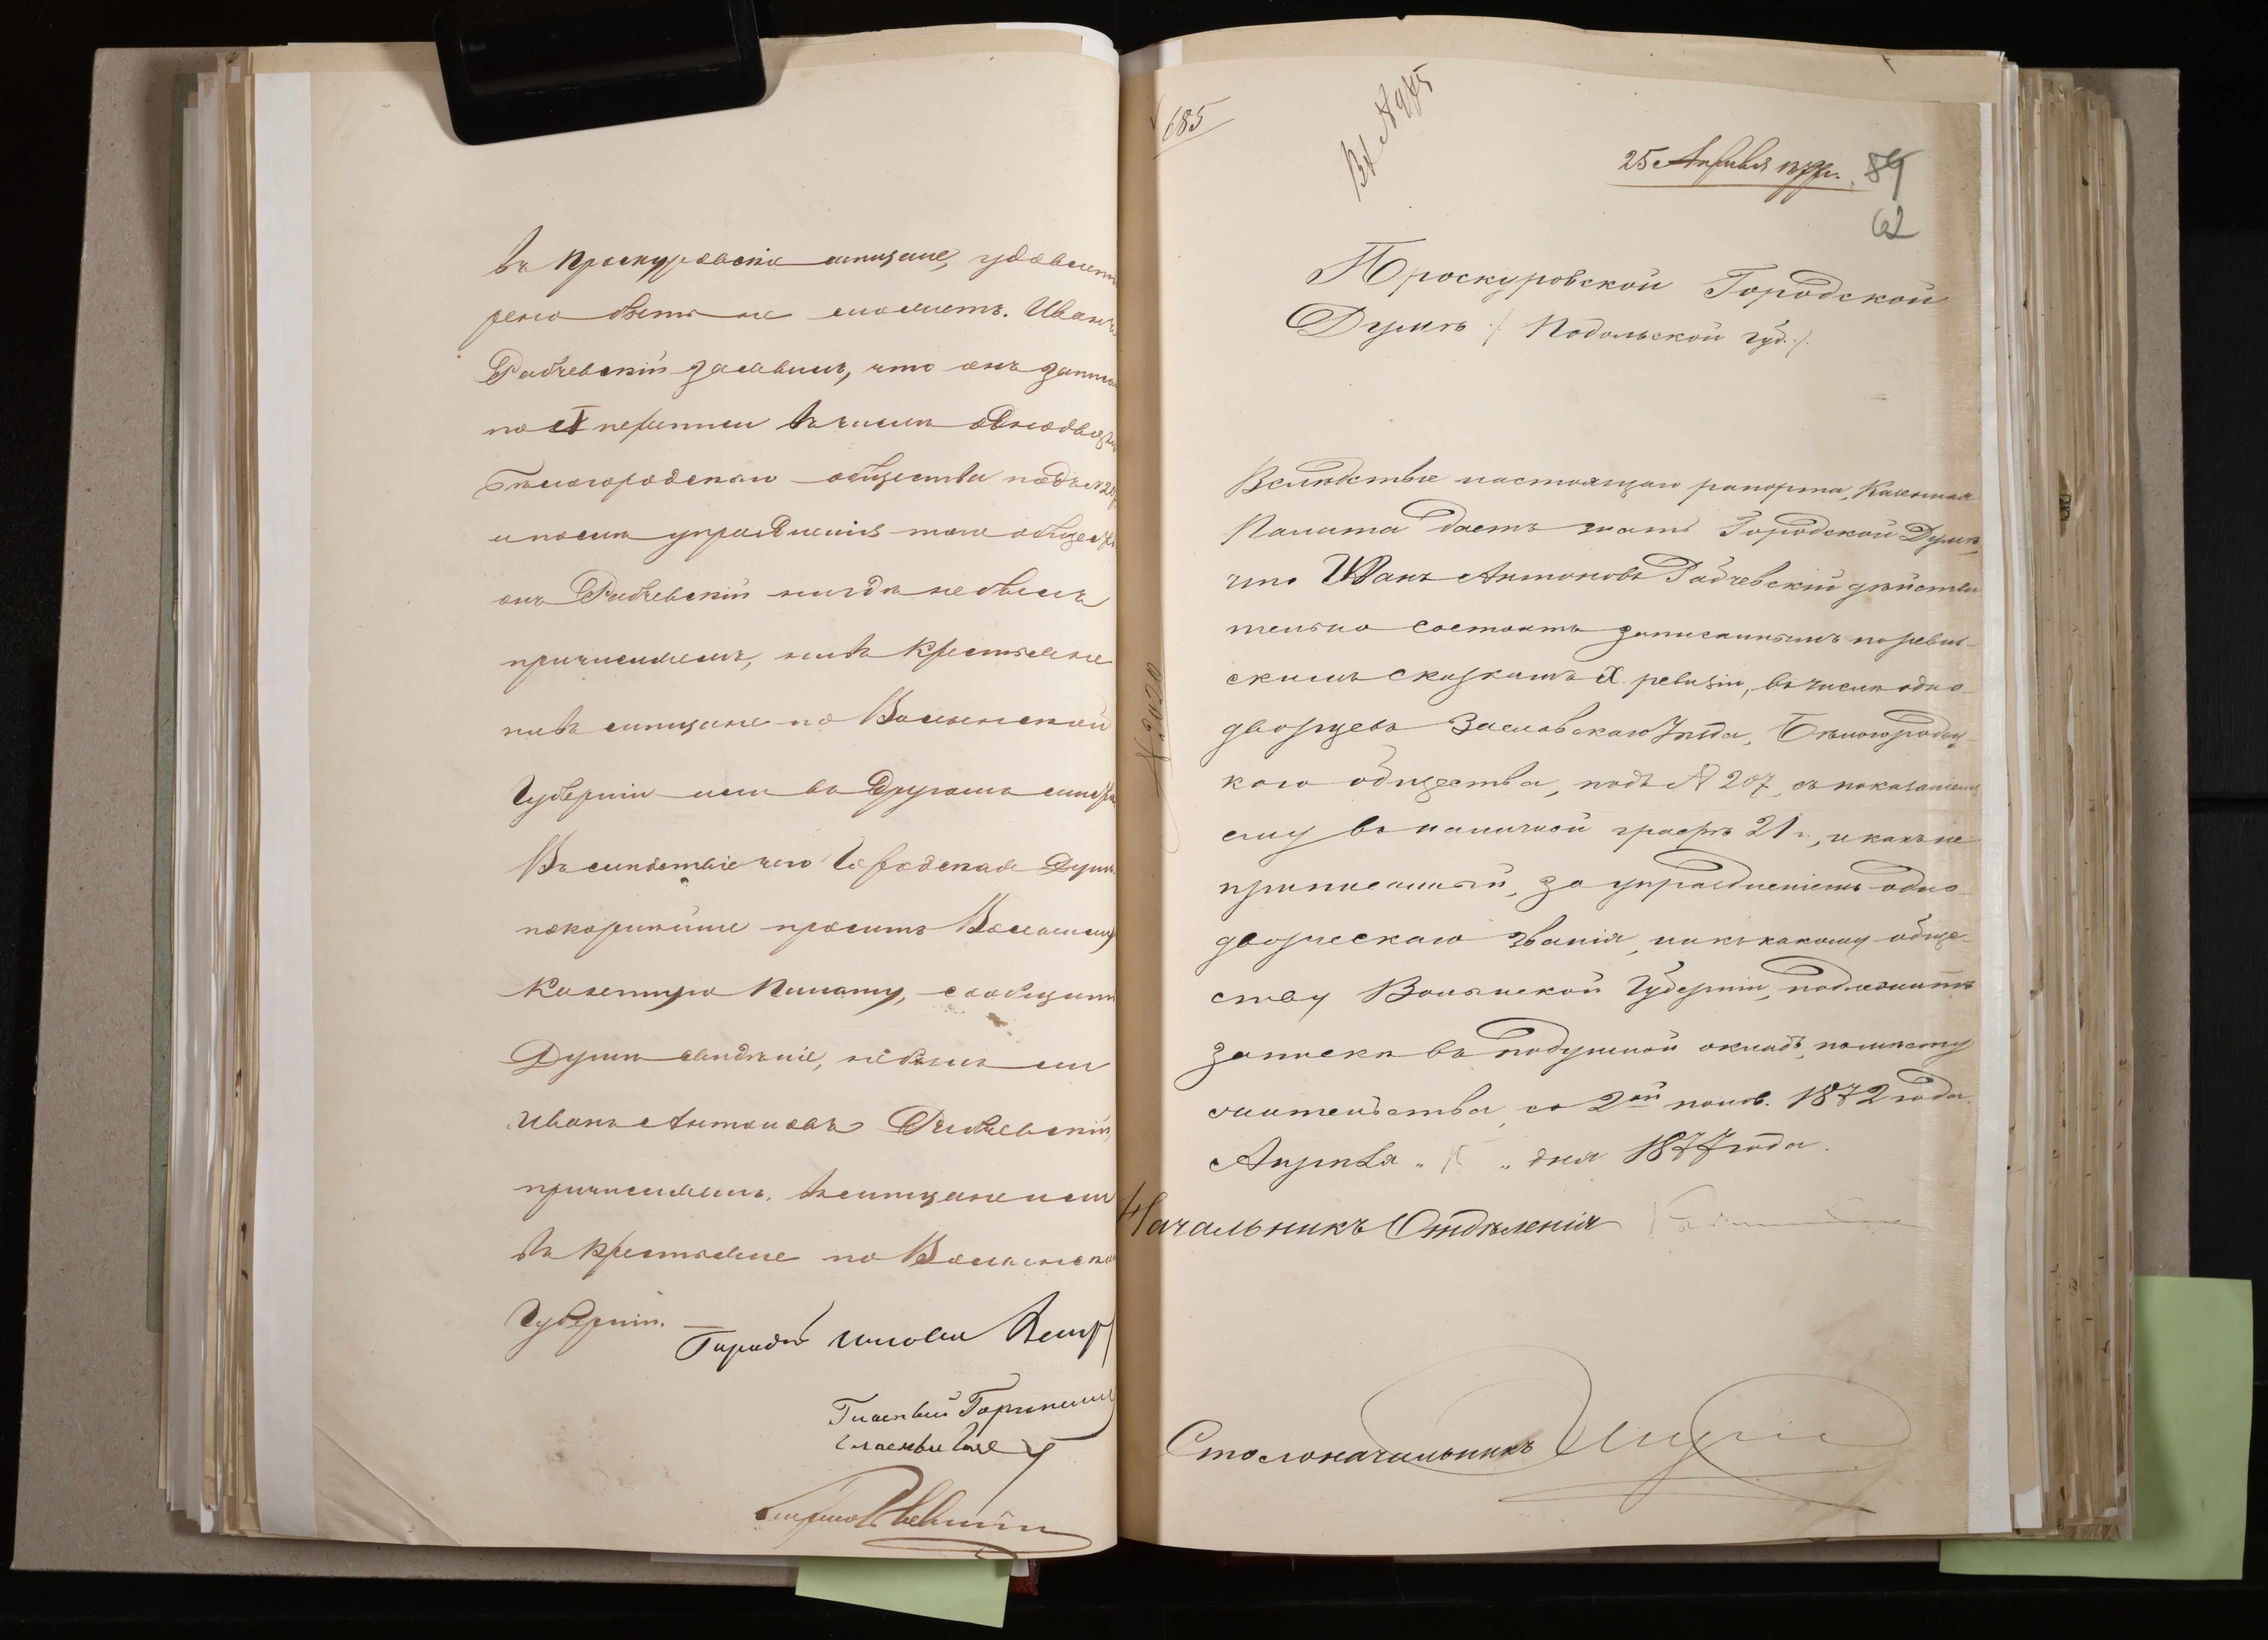 въ Проскуровскіе мещане, удовлетво
рено быть не можетъ. Иванъ
Рабчевскій заявилъ, что онъ записа
по X переписи въ число однодвор
Бѣлогородскаго общества подъ № 207
и послѣ упраздненія того общества
онъ Рабчевскій нигдѣ не былъ
причисленъ, ни въ крестьяне
ни въ мещане по Волынской
Губерніи или въ другомъ мѣстѣ
Въ слѣдствіе чего Городская Дума
покорнѣйше проситъ Волынскую
Казенную Палату, сообщить
Думѣ свидѣніе, не былъ ли
Иванъ Антоновъ Рабчевскій
причисленъ, въ мещане или
въ крестьяне по Волынской
Губерніи.
Городской Голова
Гласный
Гласный
685
Вх № 985
25 Апрѣля 1877 г. 84
62
Проскуровской Городской
Думѣ /. Подольской губ. /.
№ 2020
Вслѣдствіе настоящаго рапорта, Казенная
Палата даетъ знать Городской Думѣ,
что Иванъ Антоновъ Рабчевскій дѣйстви
тельно состоитъ записаннымъ по ревиз-
скимъ сказкамъ X. ревизіи, въ числѣ одно-
дворцевъ Заславскаго Уѣзда, Бѣлогородс-
каго общества, подъ № 207, съ показаніемъ
ему въ наличной графѣ 21 г., и какъ не
приписанный, за упраздненіемъ одно-
дворческаго званія, ни къ какому обще-
ству Волынской Губерніи, подлежитъ
записки въ подушной окладъ, по мѣсту
жительства, со 2ой полов. 1872 года.
Апрѣля " " дня 1877 года.
Начальникъ Отдѣленія
Столоначальникъ